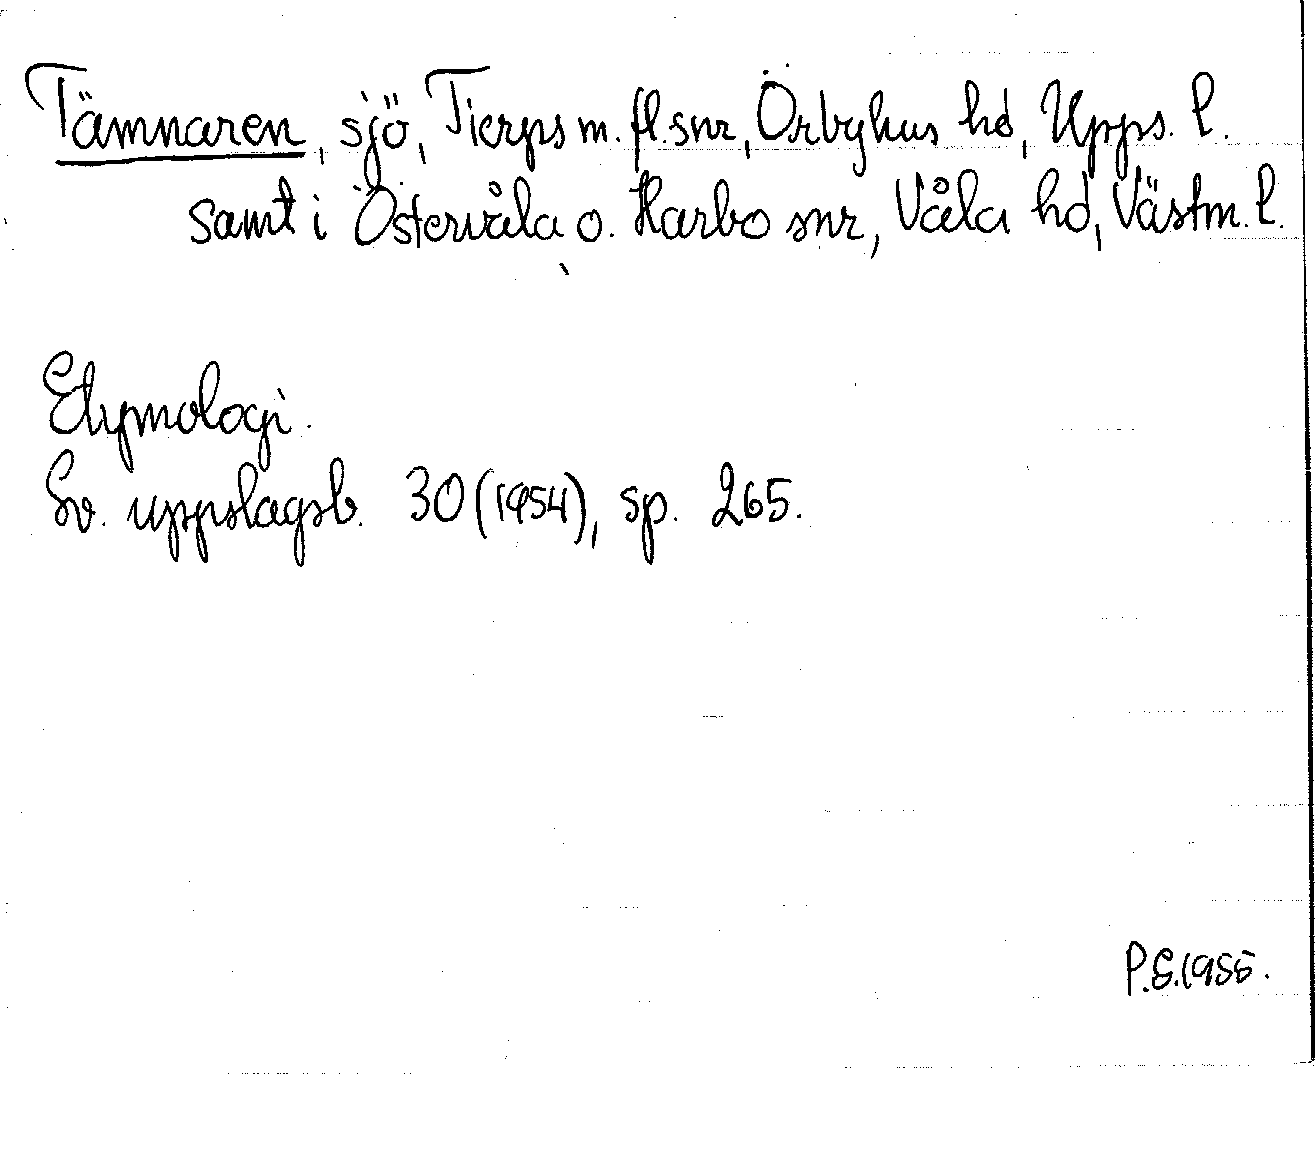 Tämnaren, sjö, Tierps m. fl. snr, Örbyhus hd, Upps. l.
samt i Östervåla o. Harbo snr, Våla hd, Västm. l.
Etymologi.
Sv. uppslagsb. 30 (1954), sp. 265.
P.S. 1955.